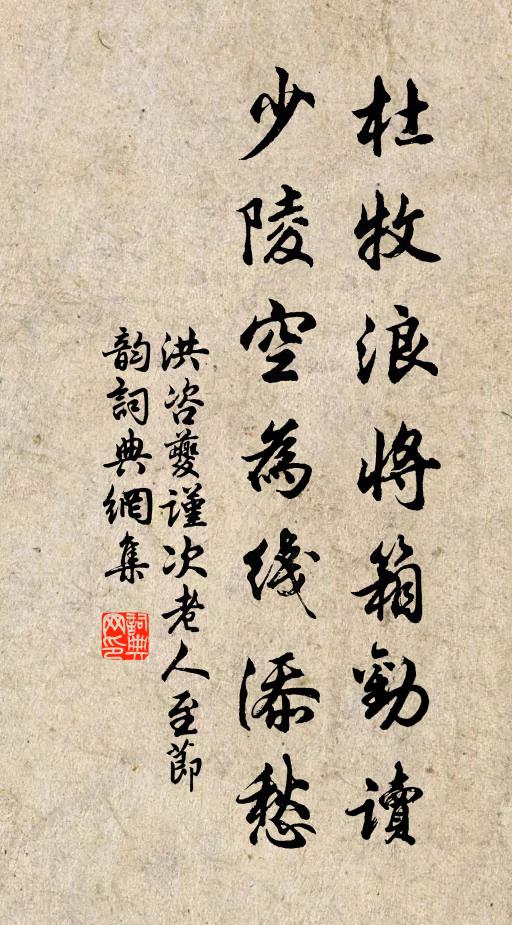 杜牧浪將箱勸讀
少陵空為綫添愁
洪咨夔謹次老人至節
韵詞典網集
詞典网印